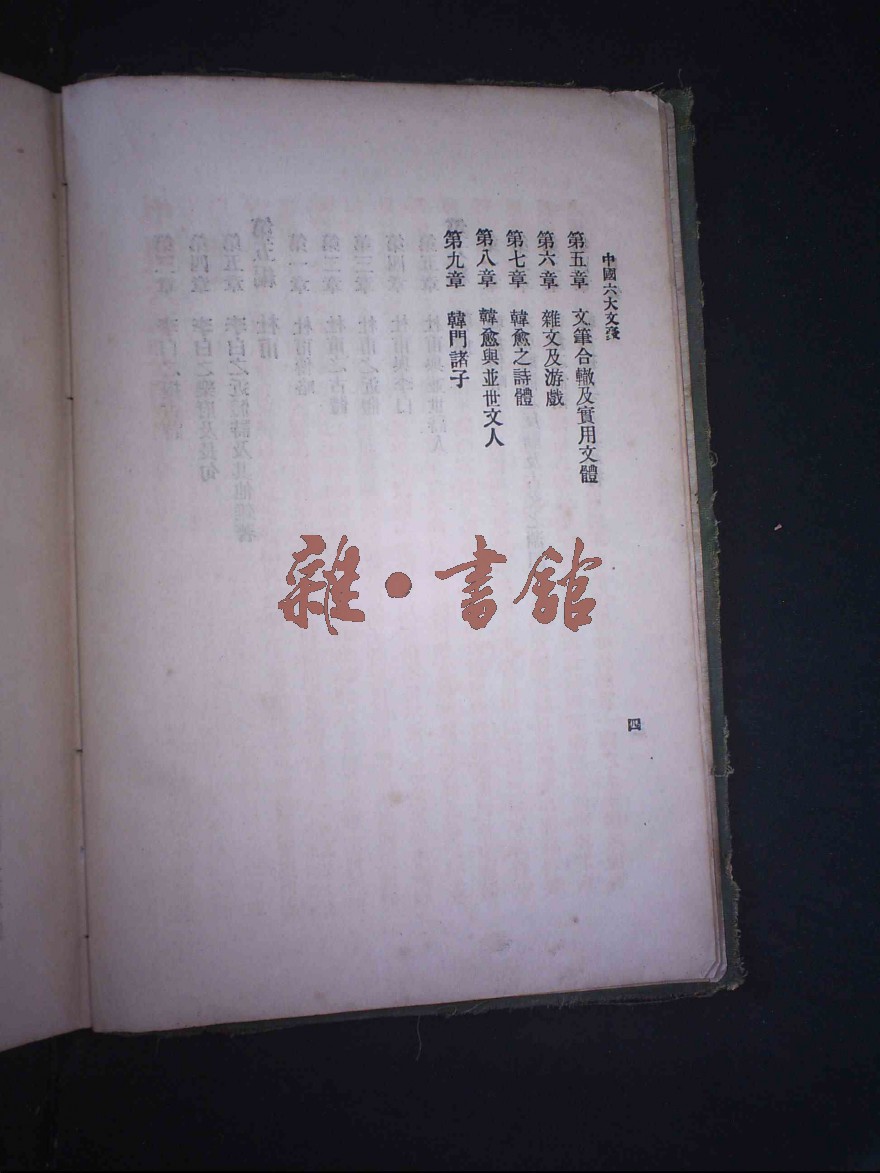 中國六大文豪
第五章 文筆合轍及實用文體
第六章 雜文及游戲
第七章 韓愈之詩體
第八章 韓愈與並世文人
第九章 韓門諸子
四
雜·書館